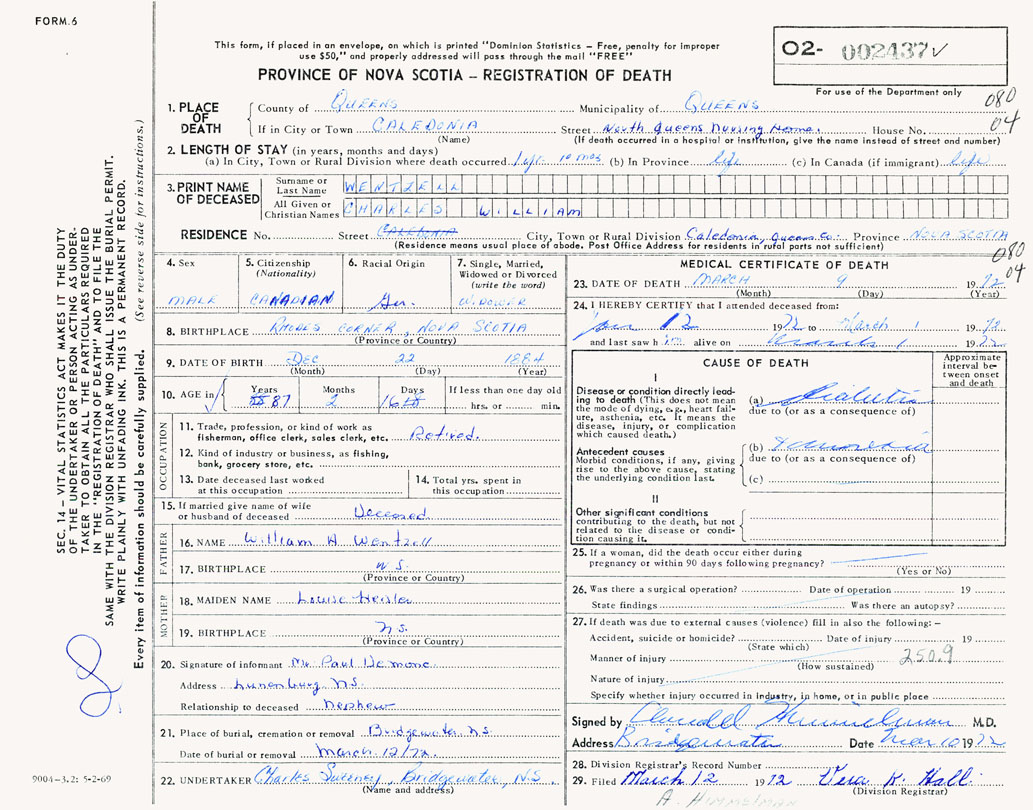 FORM.6
This form, if placed in an envelope, on which is printed "Dominion Statistics – Free, penalty for improper
use $50," and properly addressed will pass through the mail "FREE"
PROVINCE OF NOVA SCOTIA – REGISTRATION OF DEATH
O2- 002437 ✓
For use of the Department only
080
04
1. PLACE OF DEATH
County of QUEENS Municipality of QUEENS
If in City or Town CALEDONIA Street North Queens Nursing Home. House No.
(Name) (If death occurred in a hospital or institution, give the name instead of street and number)
2. LENGTH OF STAY (in years, months and days)
(a) In City, Town or Rural Division where death occurred 1 yr. 10 mos (b) In Province life (c) In Canada (if immigrant) life
3. PRINT NAME OF DECEASED
Surname or Last Name WENTZELL
All Given or Christian Names CHARLES WILLIAM
RESIDENCE No. Street CALEDONIA City, Town or Rural Division Caledonia, Queens Co. Province NOVA SCOTIA
(Residence means usual place of abode. Post Office Address for residents in rural parts not sufficient)
080
04
4. Sex MALE
5. Citizenship (Nationality) CANADIAN
6. Racial Origin Ger.
7. Single, Married, Widowed or Divorced (write the word) WIDOWER
8. BIRTHPLACE RHODES CORNER, NOVA SCOTIA
(Province or Country)
9. DATE OF BIRTH DEC 22 1884
(Month) (Day) (Year)
10. AGE in Years 87 Months 2 Days 16 If less than one day old hrs. or min.
OCCUPATION
11. Trade, profession, or kind of work as fisherman, office clerk, sales clerk, etc. Retired.
12. Kind of industry or business, as fishing, bank, grocery store, etc.
13. Date deceased last worked at this occupation
14. Total yrs. spent in this occupation
15. If married give name of wife or husband of deceased Deceased
FATHER
16. NAME William H Wentzell
17. BIRTHPLACE N.S.
(Province or Country)
MOTHER
18. MAIDEN NAME Louise Heisler
19. BIRTHPLACE N.S.
(Province or Country)
20. Signature of informant Mr. Paul Demone
Address Lunenburg N.S.
Relationship to deceased Nephew
21. Place of burial, cremation or removal Bridgewater N.S.
Date of burial or removal March. 12/72.
22. UNDERTAKER Charles Sweeney, Bridgewater, N.S.
(Name and address)
MEDICAL CERTIFICATE OF DEATH
23. DATE OF DEATH MARCH 9 1972
(Month) (Day) (Year)
24. I HEREBY CERTIFY that I attended deceased from:
Jan 12 1972 to March 1 1972
and last saw h im alive on March 1 1972
CAUSE OF DEATH
Approximate interval between onset and death
I
Disease or condition directly leading to death (This does not mean the mode of dying, e.g., heart failure, asthenia, etc. It means the disease, injury, or complication which caused death.)
(a) Diabetes
due to (or as a consequence of)
Antecedent causes
Morbid conditions, if any, giving rise to the above cause, stating the underlying condition last.
(b)
due to (or as a consequence of)
(c)
II
Other significant conditions
contributing to the death, but not related to the disease or condition causing it.
25. If a woman, did the death occur either during
pregnancy or within 90 days following pregnancy?
(Yes or No)
26. Was there a surgical operation? Date of operation 19
State findings Was there an autopsy?
27. If death was due to external causes (violence) fill in also the following: –
Accident, suicide or homicide? Date of injury 19
(State which)
Manner of injury 250.9
(How sustained)
Nature of injury
Specify whether injury occurred in industry, in home, or in public place
Signed by Himmelman M.D.
Address Bridgewater Date Mar 10 1972
28. Division Registrar's Record Number
29. Filed March 12 1972 Vera K. Hall
(Division Registrar)
A. HIMMELMAN
SEC. 14 – VITAL STATISTICS ACT MAKES IT THE DUTY
OF THE UNDERTAKER OR PERSON ACTING AS UNDER-
TAKER TO OBTAIN ALL THE PARTICULARS REQUIRED
IN THE "REGISTRATION OF DEATH" AND TO FILE THE
SAME WITH THE DIVISION REGISTRAR WHO SHALL ISSUE THE BURIAL PERMIT.
WRITE PLAINLY WITH UNFADING INK. THIS IS A PERMANENT RECORD.
Every item of information should be carefully supplied. (See reverse side for instructions.)
9004-3.2: 5-2-69